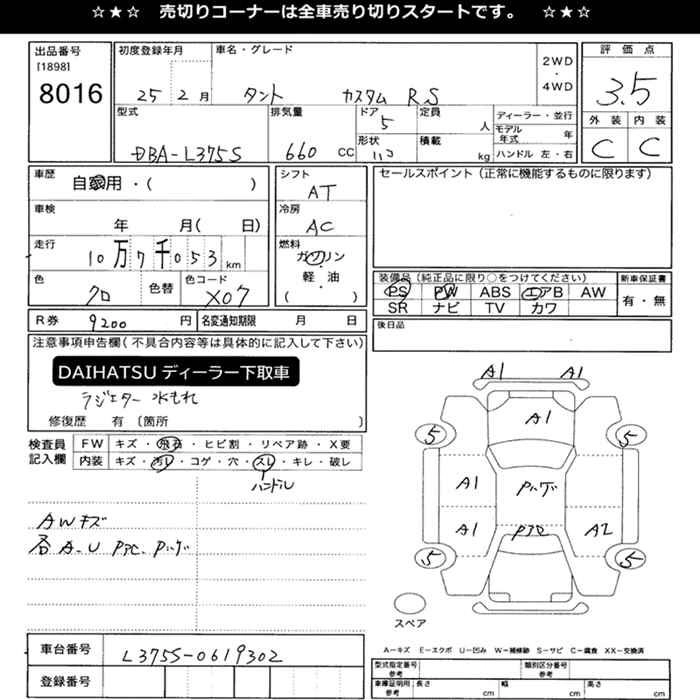 ☆★☆ 売切りコーナーは全車売り切りスタートです。 ☆★☆
出品番号 初度登録年月 車名・グレード 2WD・4WD 評価点
[1898]
8016 25 2月 タント カスタム RS 3.5
型式 排気量 ドア 5 定員 人 ディーラー・並行 外装 内装
形状 積載 モデル年式 年
DBA-L375S 660 CC kg ハンドル 左・右 C C
車歴 自家用・( ) シフト AT セールスポイント(正常に機能するものに限ります)
車検 年 月( 日) 冷房 AC
走行 10万7千053km 燃料 ガソリン
軽・油
色 クロ 色替 色コード X07 ( ・ )
装備品(純正品に限り○をつけてください) 新車保証書
PS PW ABS エアB AW 有・無
SR ナビ TV カワ
R券 9200 円 名変通知期限 月 日 後日品
注意事項申告欄(不具合内容等は具体的に記入して下さい)
DAIHATSU ディーラー下取車
ラジエター 水もれ
修復歴 有 〔箇所 〕
検査員 FW キズ・飛石・ヒビ割・リペア跡・X要
記入欄 内装 キズ・汚レ・コゲ・穴・スレ・キレ・破レ
ハンドル
AWキズ
各A.U Pアビ.Pハゲ
A1 A1
A1
5 5
A1 Pハゲ
A1 Pアビ A2
5 5
スペア
A-キズ E-エクボ U-凹み W-補修跡 S-サビ C-腐食 XX-交換済
車台番号 L375S-0619302
型式指定番号 参考 類別区分番号 参考
登録番号 車庫証明用 参考 長さ cm 幅 cm 高さ cm